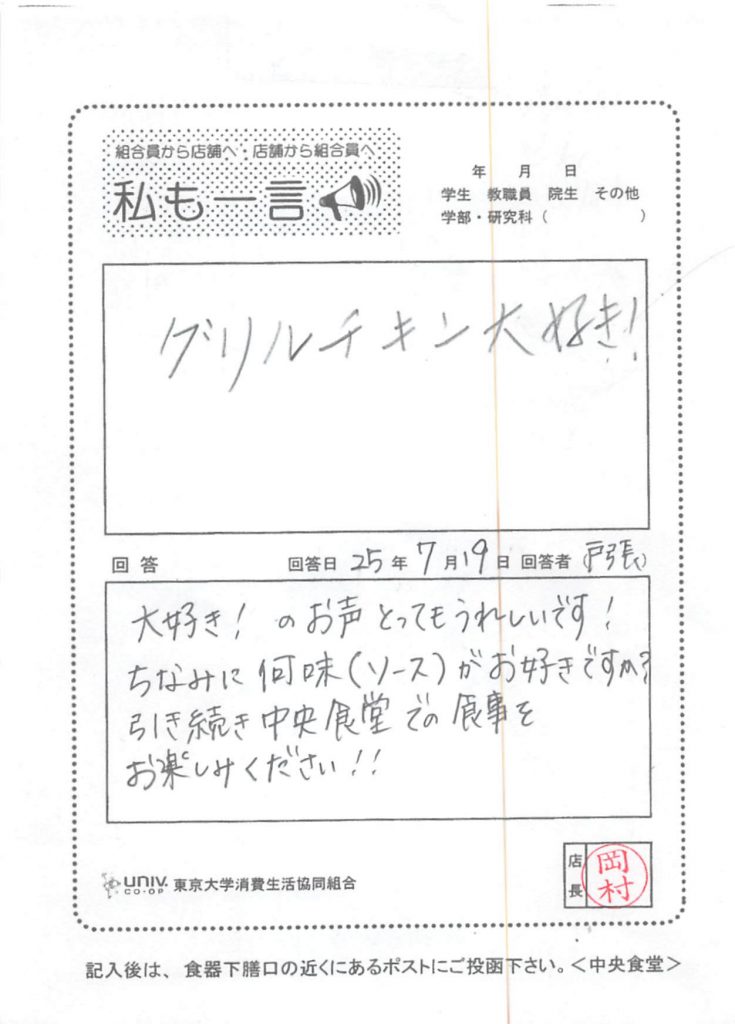 組合員から店舗へ・店舗から組合員へ
私も一言
年 月 日
学生 教職員 院生 その他
学部・研究科（ ）
グリルチキン大好き!
回答 回答日 25年 7月19日 回答者 (戸張)
大好き! のお声 とってもうれしいです!
ちなみに 何味(ソース)がお好きですか?
引き続き 中央食堂での食事を
お楽しみください!!
UNIV. CO-OP 東京大学消費生活協同組合
店長 岡村
記入後は、食器下膳口の近くにあるポストにご投函下さい。＜中央食堂＞